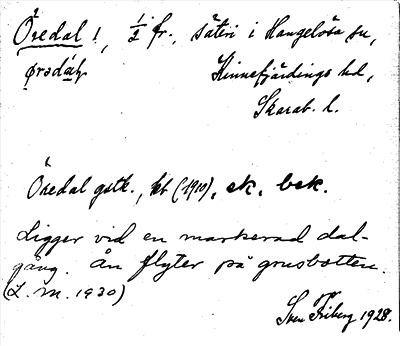 Öredal !, 1/2 fr., säteri i Hangelösa sn,
ørədàl, Kinnefjärdings hd,
Skarab. l.
Öredal gstk., kt (1910), ek. bek.
Ligger vid en markerad dal-
gång. Ån flyter på grusbotten.
(L. M. 1930)
Sven Friberg 1928.